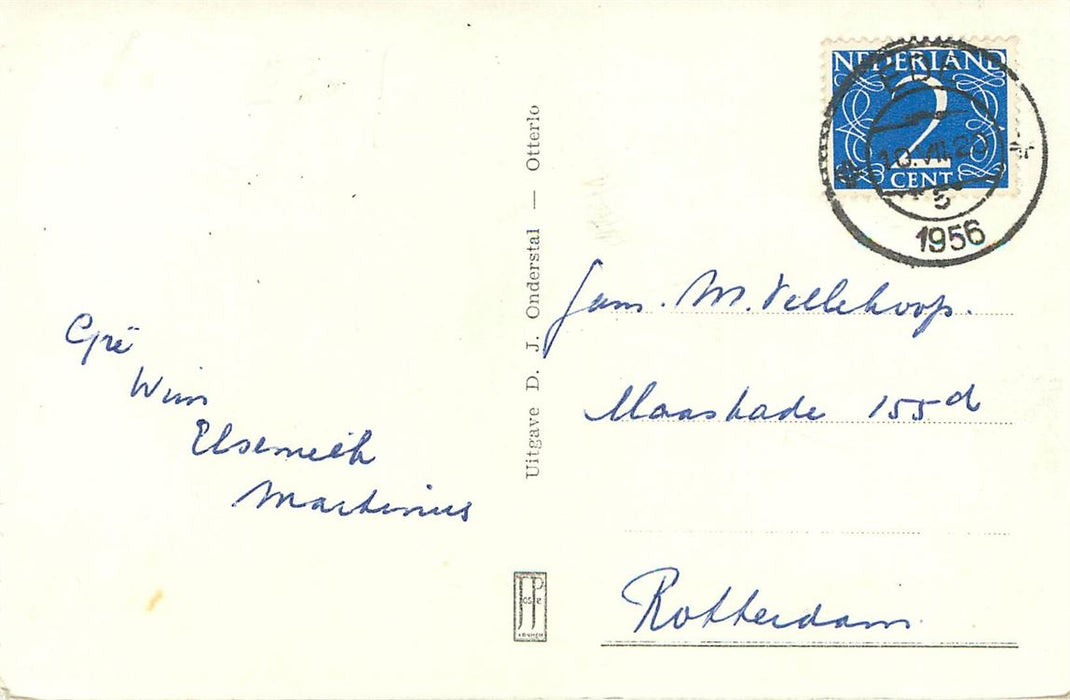 NEDERLAND
2
CENT
EDE
10.VII.20
5
1956
Fam. M. Vellekoop.
Maaskade 155d
Rotterdam
Gré
Wim
Elsemiek
Martinus
Uitgave D. J. Onderstal — Otterlo